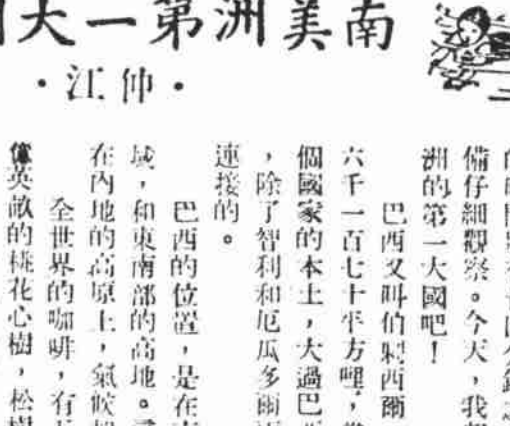 南美洲第一大
·仲江·
備仔細觀察。今天，我
洲的第一大國吧！
巴西又叫伯剌西爾
六千一百七十平方哩，
個國家的本土，大過巴
，除了智利和厄瓜多爾
連接的。
巴西的位置，是在
域，和東南部的高地。
在內地的高原上，氣候
全世界的咖啡，有
英畝的桃花心樹，松樹